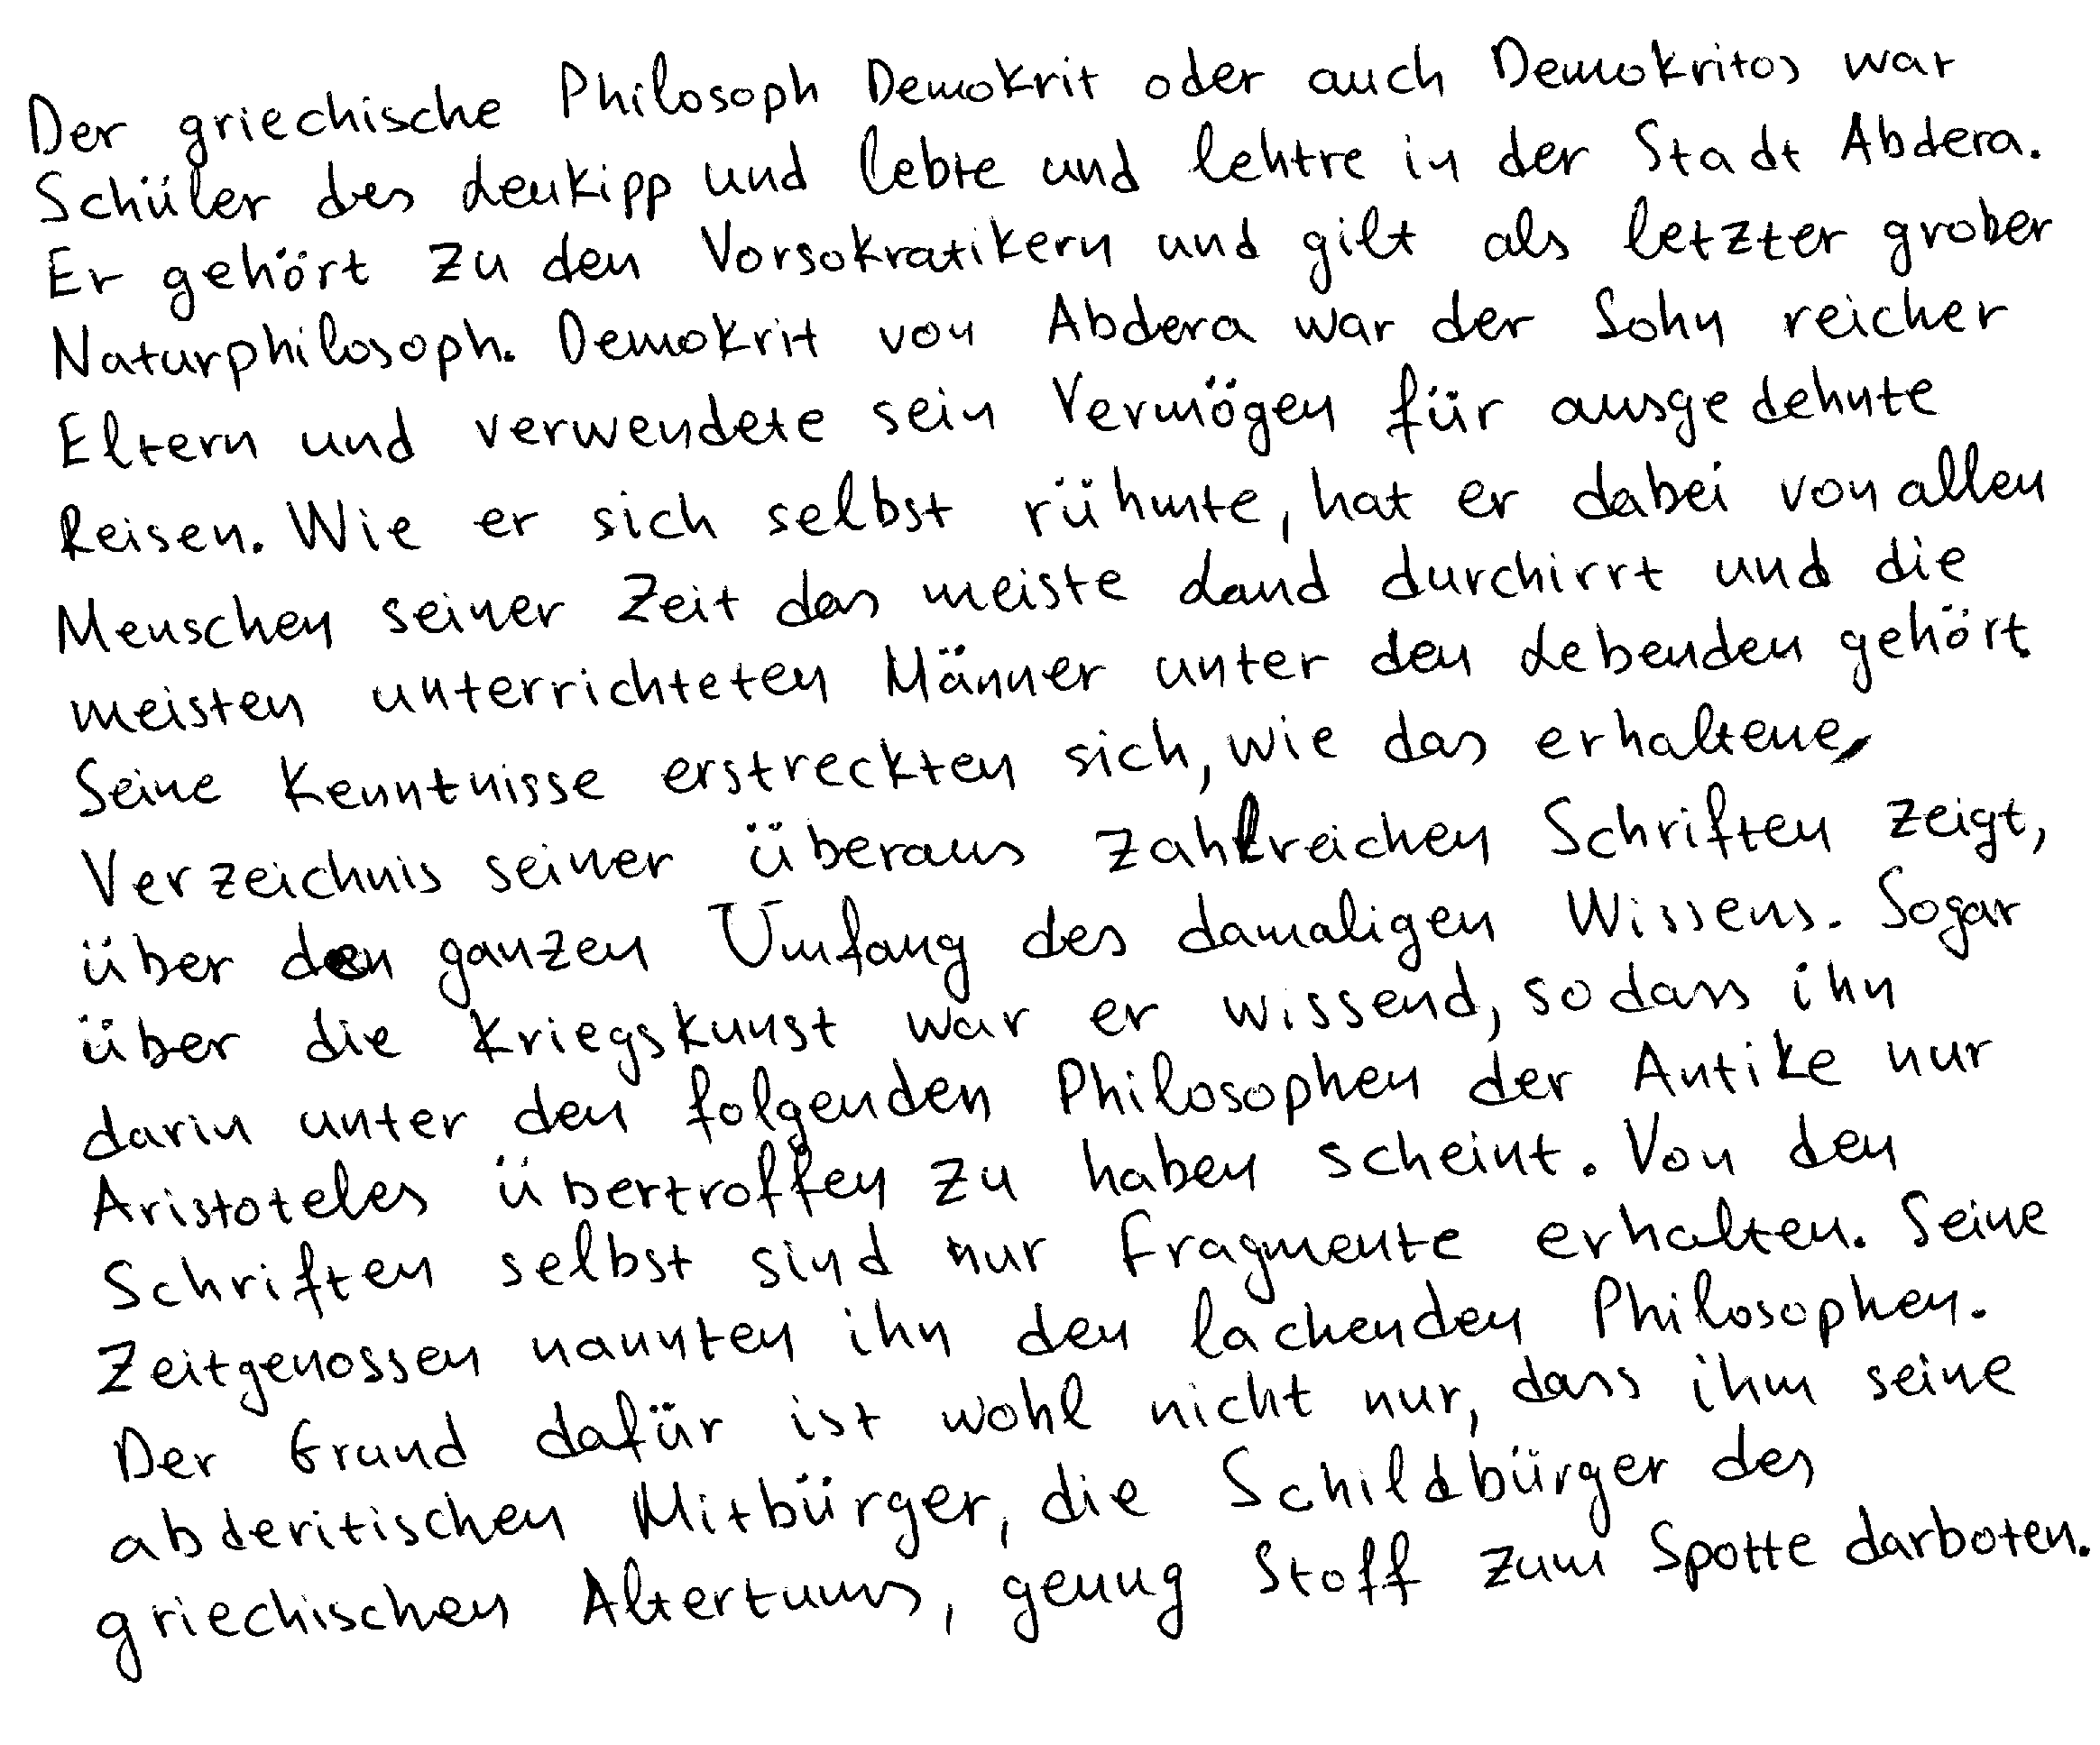 Der griechische Philosoph Demokrit oder auch Demokritos war
Schüler des Leukipp und lebte und lehtre in der Stadt Abdera.
Er gehört zu den Vorsokratikern und gilt als letzter grober
Naturphilosoph. Demokrit von Abdera war der Sohn reicher
Eltern und verwendete sein Vermögen für ausgedehnte
Reisen. Wie er sich selbst rühmte, hat er dabei von allen
Menschen seiner Zeit das meiste Land durchirrt und die
meisten unterrichteten Männer unter den Lebenden gehört.
Seine Kenntnisse erstreckten sich, wie das erhaltene
Verzeichnis seiner überaus zahlreichen Schriften zeigt,
über den ganzen Umfang des damaligen Wissens. Sogar
über die Kriegskunst war er wissend, sodass ihn
darin unter den folgenden Philosophen der Antike nur
Aristoteles übertroffen zu haben scheint. Von den
Schriften selbst sind nur Fragmente erhalten. Seine
Zeitgenossen nannten ihn den lachenden Philosophen.
Der Grund dafür ist wohl nicht nur, dass ihm seine
abderitischen Mitbürger, die Schildbürger des
griechischen Altertums, genug Stoff zum Spotte darboten.